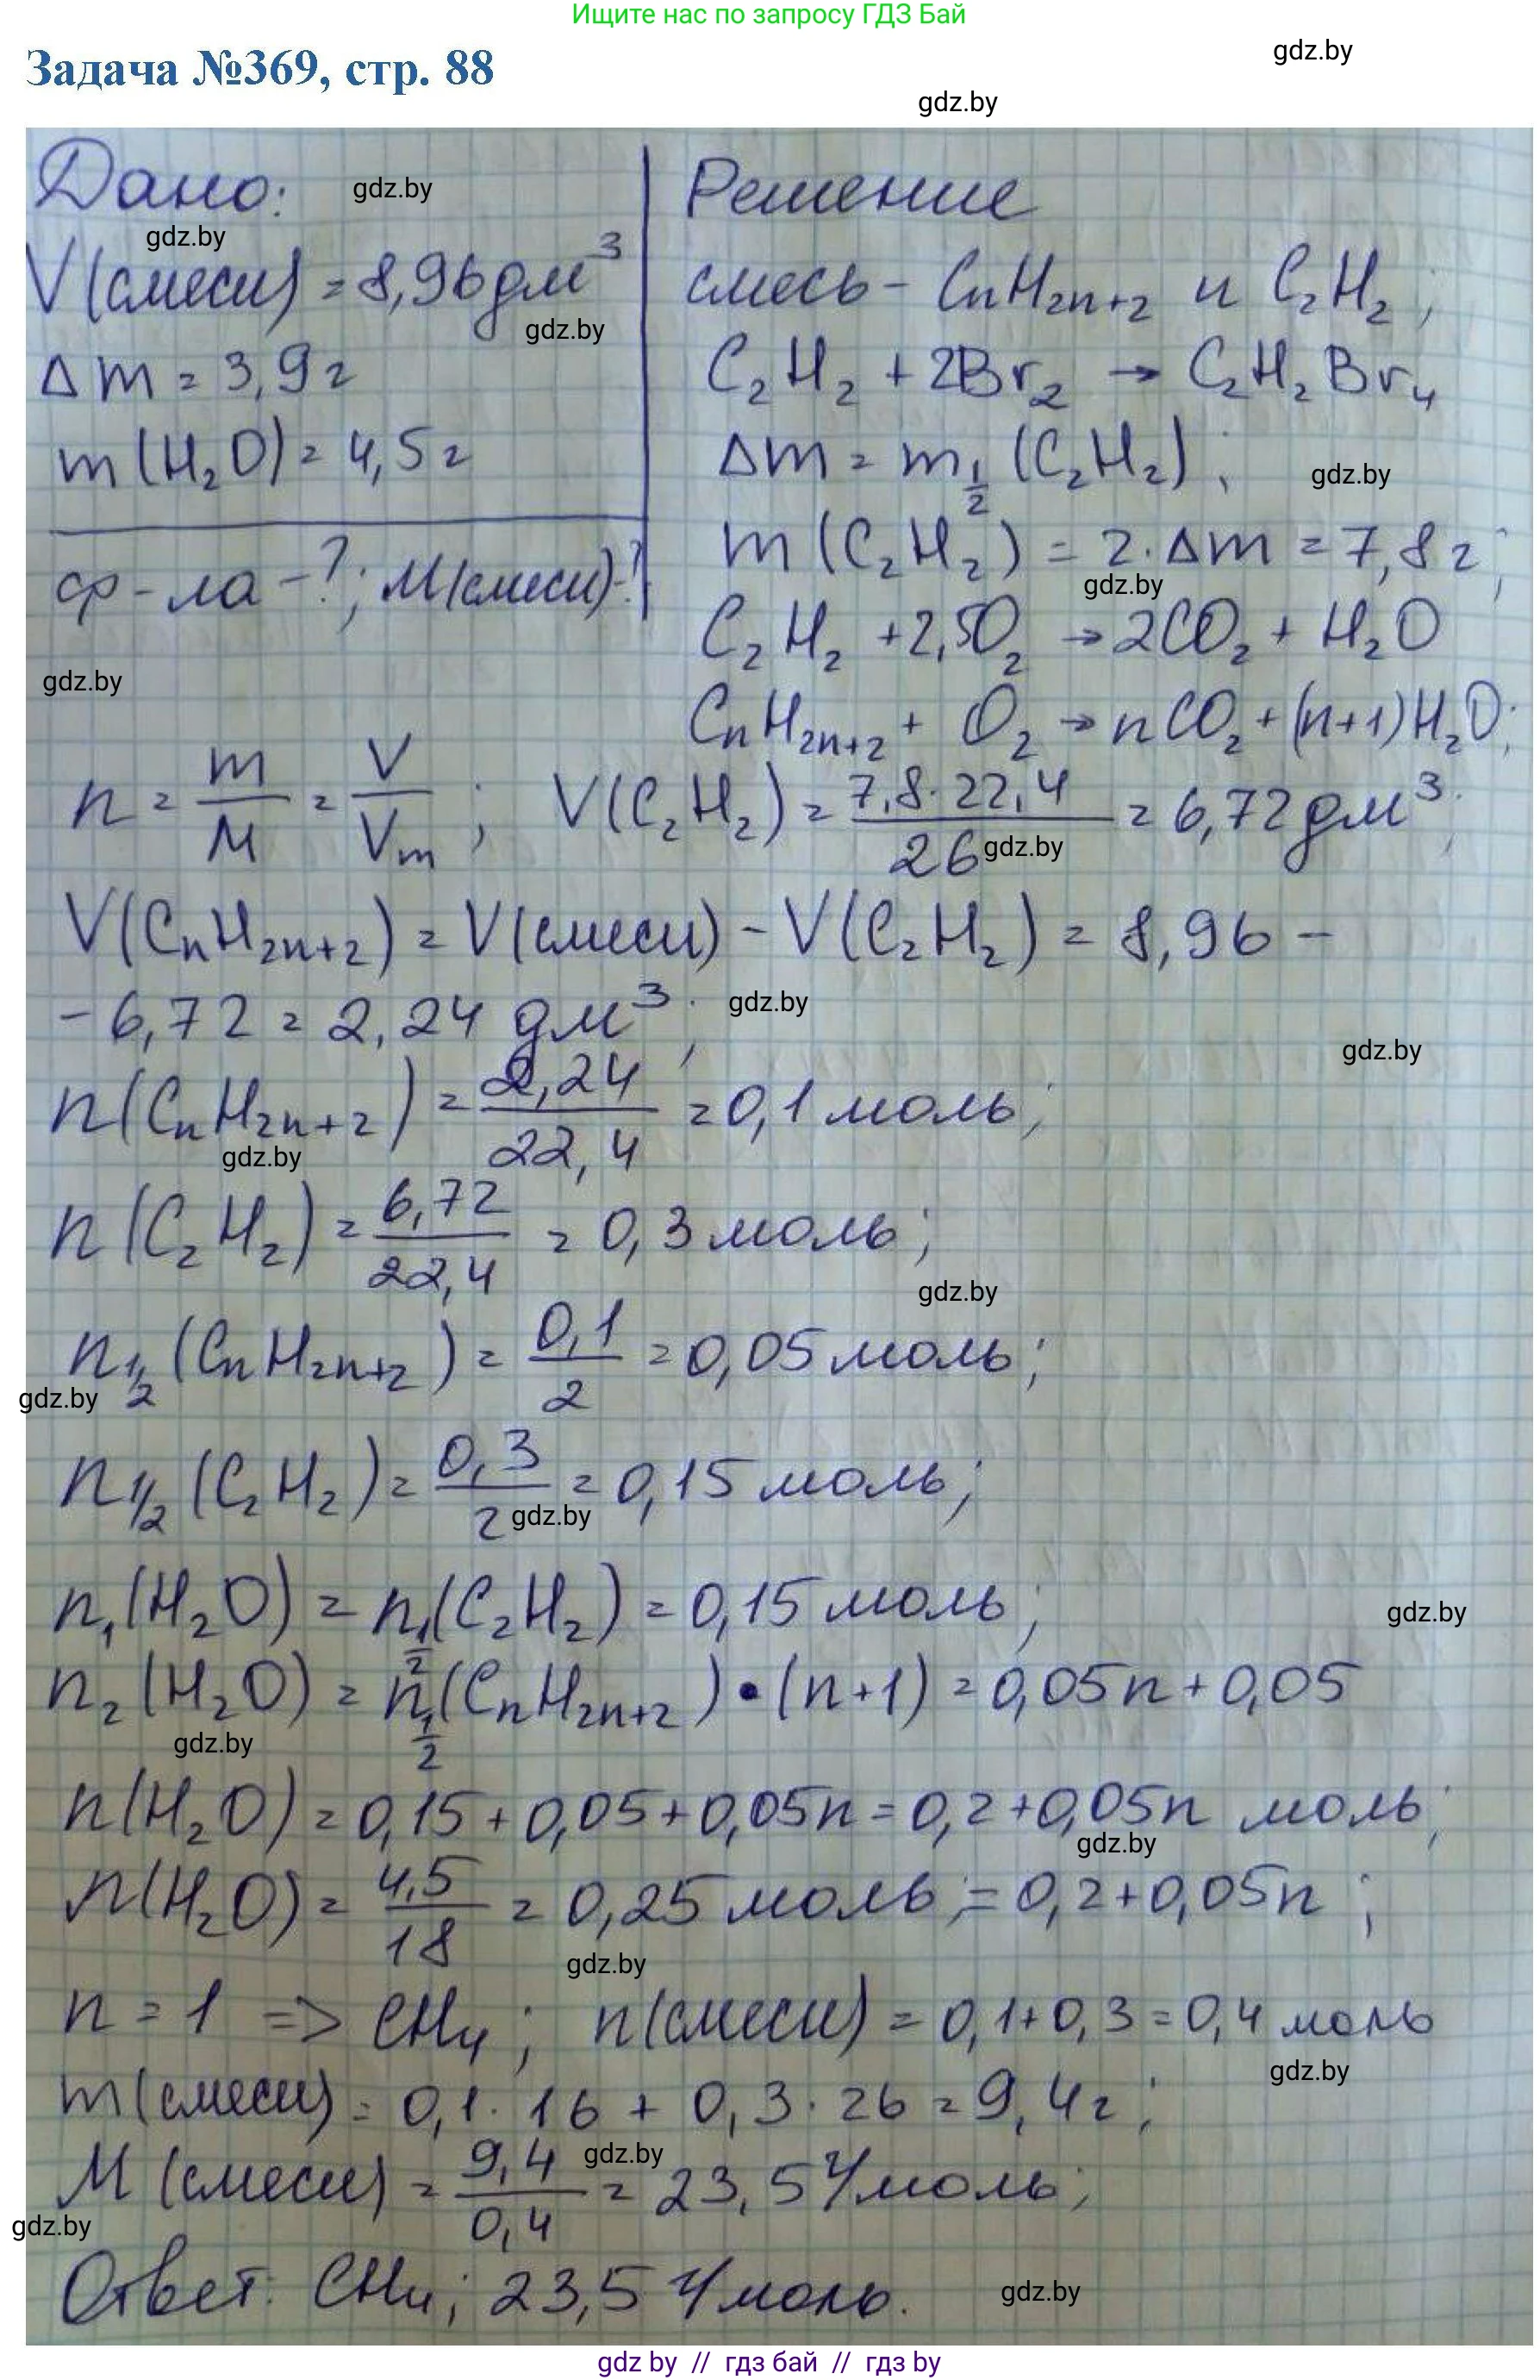 Ищите нас по запросу ГДЗ Бай
Задача №369, стр. 88
gdz.by
gdz.by
Дано:
gdz.by
gdz.by
V(смеси) = 8,96 дм³
gdz.by
Δm = 3,9 г
m(H₂O) = 4,5 г
ф-ла - ?; M(смеси) - ?
gdz.by
Решение
смесь - CnH2n+2 и C₂H₂;
C₂H₂ + 2Br₂ → C₂H₂Br₄
Δm = m1/2 (C₂H₂);
gdz.by
m(C₂H₂) = 2·Δm = 7,8 г;
gdz.by
C₂H₂ + 2,5O₂ → 2CO₂ + H₂O
CnH2n+2 + O₂ → nCO₂ + (n+1)H₂O;
n = m/M = V/Vm; V(C₂H₂) = 7,8·22,4/26 = 6,72 дм³;
gdz.by
V(CnH2n+2) = V(смеси) - V(C₂H₂) = 8,96 -
- 6,72 = 2,24 дм³;
gdz.by
gdz.by
n(CnH2n+2) = 2,24/22,4 = 0,1 моль;
gdz.by
n(C₂H₂) = 6,72/22,4 = 0,3 моль;
gdz.by
n1/2 (CnH2n+2) = 0,1/2 = 0,05 моль;
gdz.by
n1/2 (C₂H₂) = 0,3/2 = 0,15 моль;
gdz.by
n₁(H₂O) = n1/2(C₂H₂) = 0,15 моль;
gdz.by
n₂(H₂O) = n1/2(CnH2n+2)•(n+1) = 0,05n + 0,05
gdz.by
n(H₂O) = 0,15 + 0,05 + 0,05n = 0,2 + 0,05n моль;
gdz.by
n(H₂O) = 4,5/18 = 0,25 моль; = 0,2 + 0,05n;
gdz.by
n = 1 => CH₄; n(смеси) = 0,1 + 0,3 = 0,4 моль
gdz.by
m(смеси) = 0,1·16 + 0,3·26 = 9,4 г;
gdz.by
M(смеси) = 9,4/0,4 = 23,5 г/моль;
gdz.by
Ответ: CH₄; 23,5 г/моль.
gdz.by
gdz by // гдз бай // гдз by